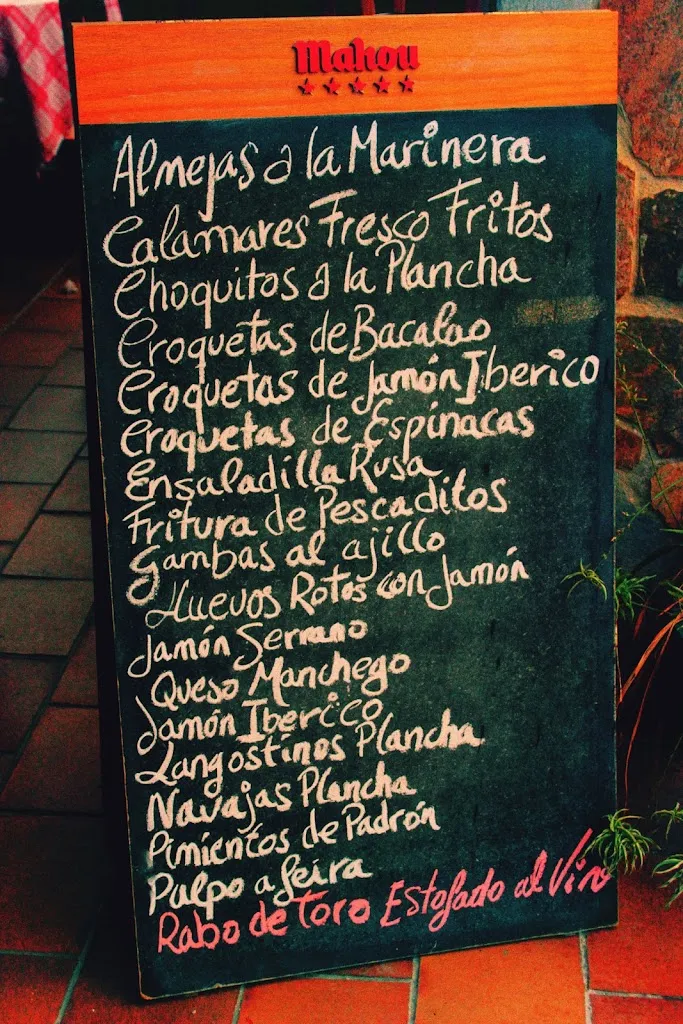 Mahou
Almejas a la Marinera
Calamares Fresco Fritos
Choquitos a la Plancha
Croquetas de Bacalao
Croquetas de Jamón Iberico
Croquetas de Espinacas
Ensaladilla Rusa
Fritura de Pescaditos
Gambas al ajillo
Huevos Rotos con Jamón
Jamón Serrano
Queso Manchego
Jamón Iberico
Langostinos Plancha
Navajas Plancha
Pimientos de Padrón
Pulpo a feira
Rabo de Toro Estofado al Vino